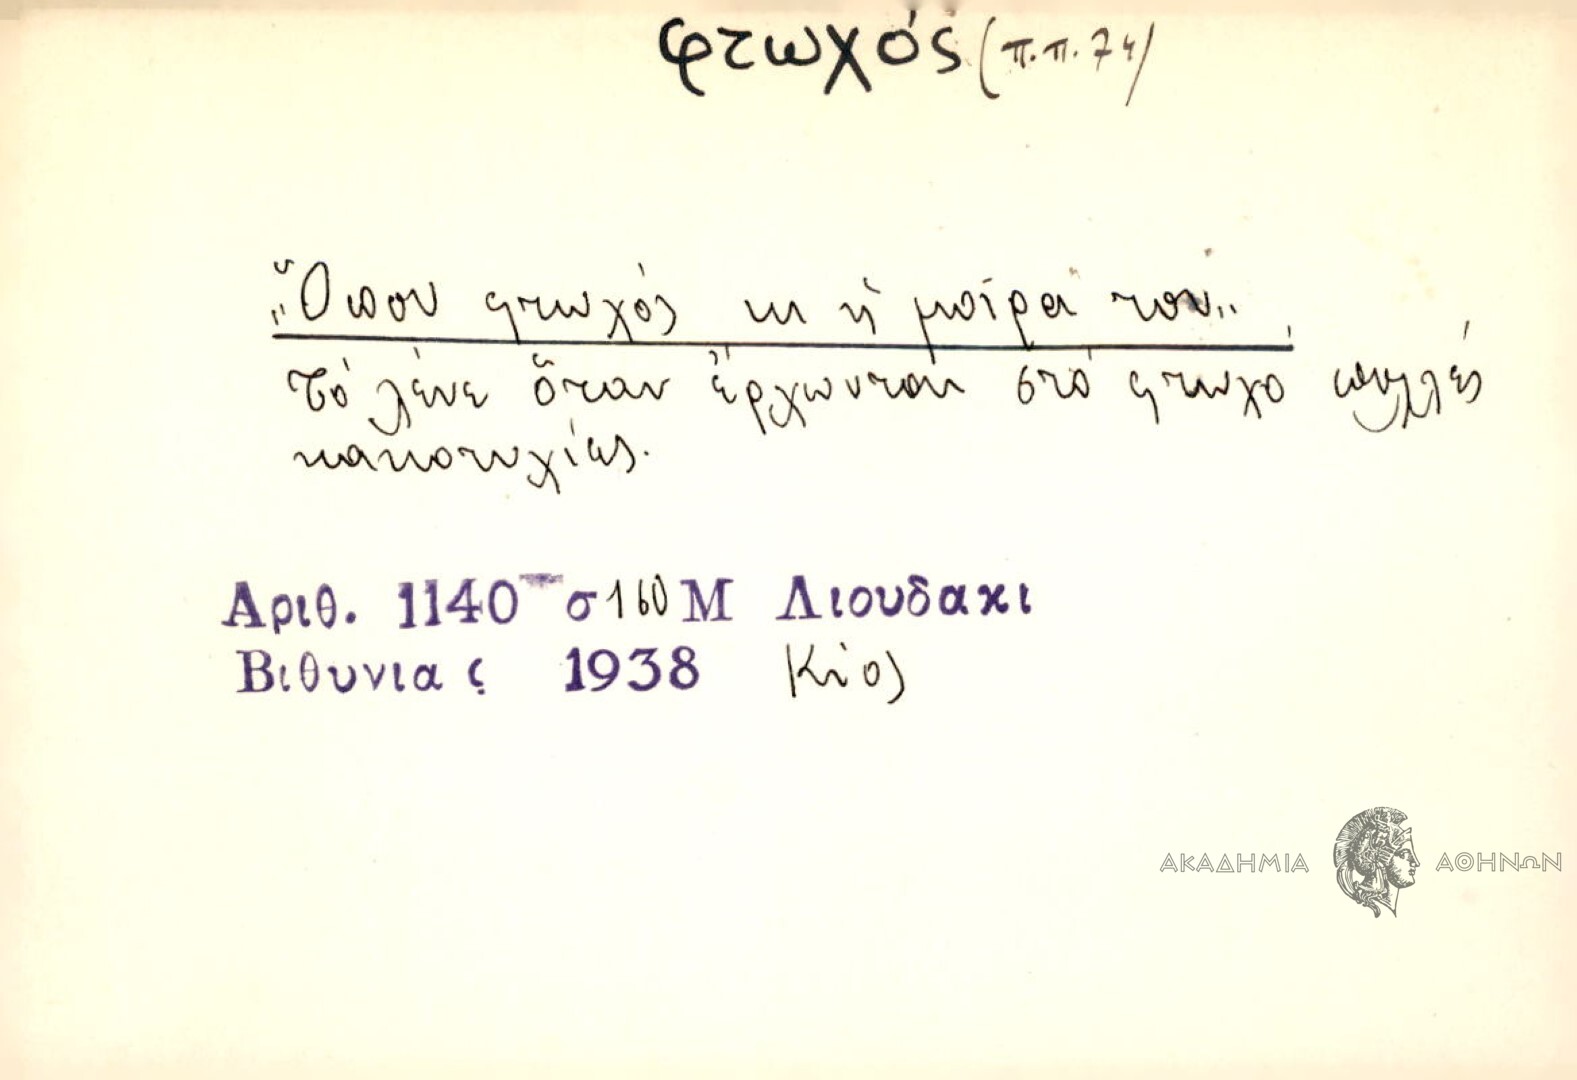 φτωχός (π.π. 74)
"Όπου φτωχός κι ἡ μοῖρα του"
Τό λένε ὅταν ἔρχωνται στό φτωχό πολλές
κακοτυχίες.
Αριθ. 1140 σ 160 Μ Λιουδακι
Βιθυνιας 1938 Κίος
ΑΚΑΔΗΜΙΑ ΑΘΗΝΩΝ